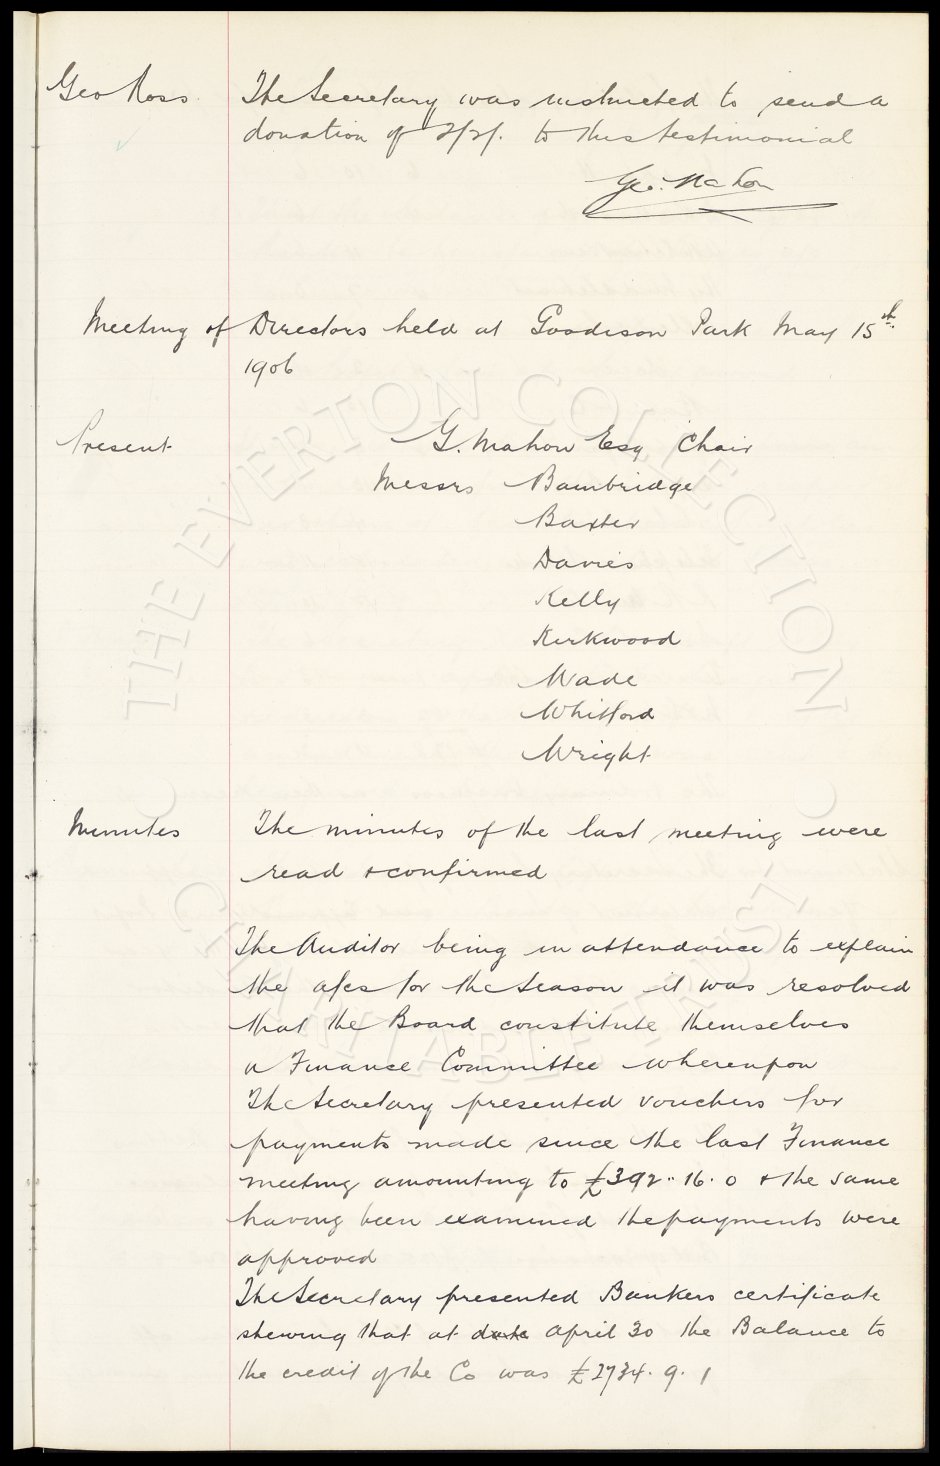 Geo Ross. The Secretary was instructed to send a
donation of 2/2/. to this testimonial
Geo. Mahon
Meeting of Directors held at Goodison Park May 15th.
1906
Present G. Mahon Esq Chair
Messrs Bambridge
Baxter
Davies
Kelly
Kirkwood
Wade
Whitford
Wright
Minutes The minutes of the last meeting were
read & confirmed
The Auditor being in attendance to explain
the a/cs for the Season it was resolved
that the Board constitute themselves
a Finance Committee whereupon
The Secretary presented vouchers for
payments made since the last Finance
meeting amounting to £392.. 16. 0 & the same
having been examined the payments were
approved
The Secretary presented Bankers certificate
shewing that at date April 30 the Balance to
the credit of the Co was £2734. 9. 1
THE EVERTON COLLECTION CHARITABLE TRUST